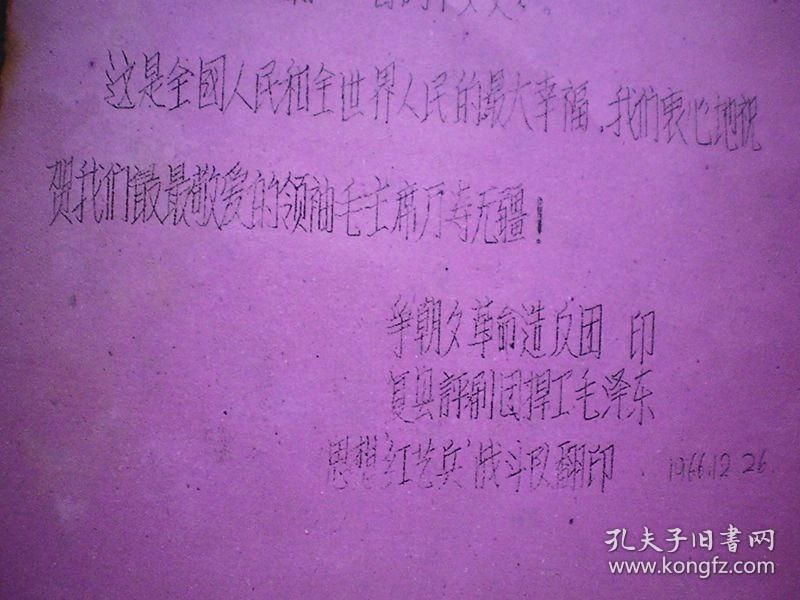 这是全國人民和全世界人民的最大幸福，我们衷心地祝
贺我们最最敬爱的领袖毛主席万寿无疆！
争朝夕革命造反团 印
复县評剧团捍卫毛泽东
思想“红艺兵”战斗队翻印 1966.12.26.
孔夫子旧書网
www.kongfz.com